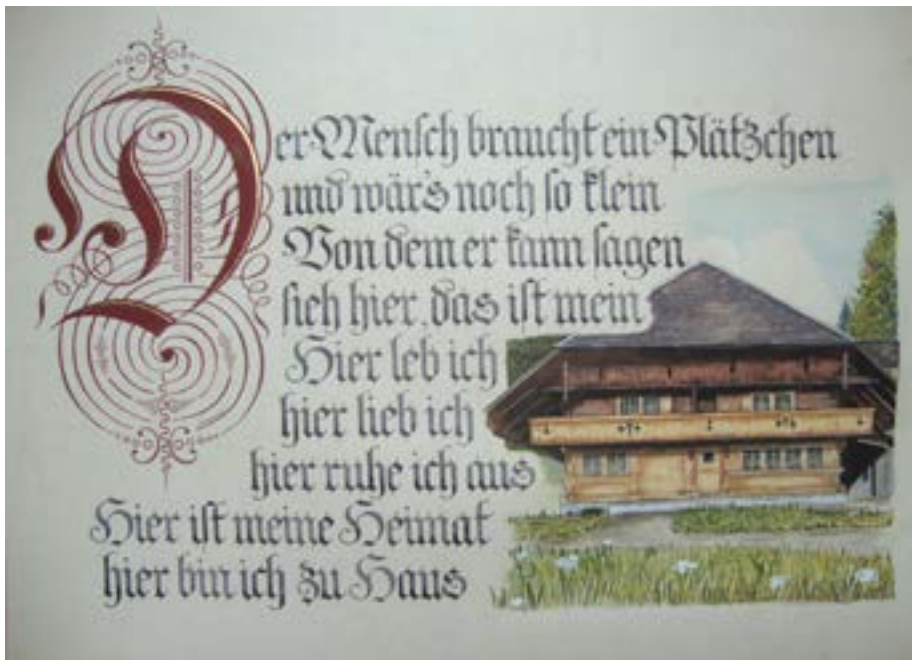 Der Mensch braucht ein Plätzchen
und wär's noch so klein
Von dem er kann sagen
sieh hier, das ist mein
Hier leb ich
hier lieb ich
hier ruhe ich aus
Hier ist meine Heimat
hier bin ich zu Haus